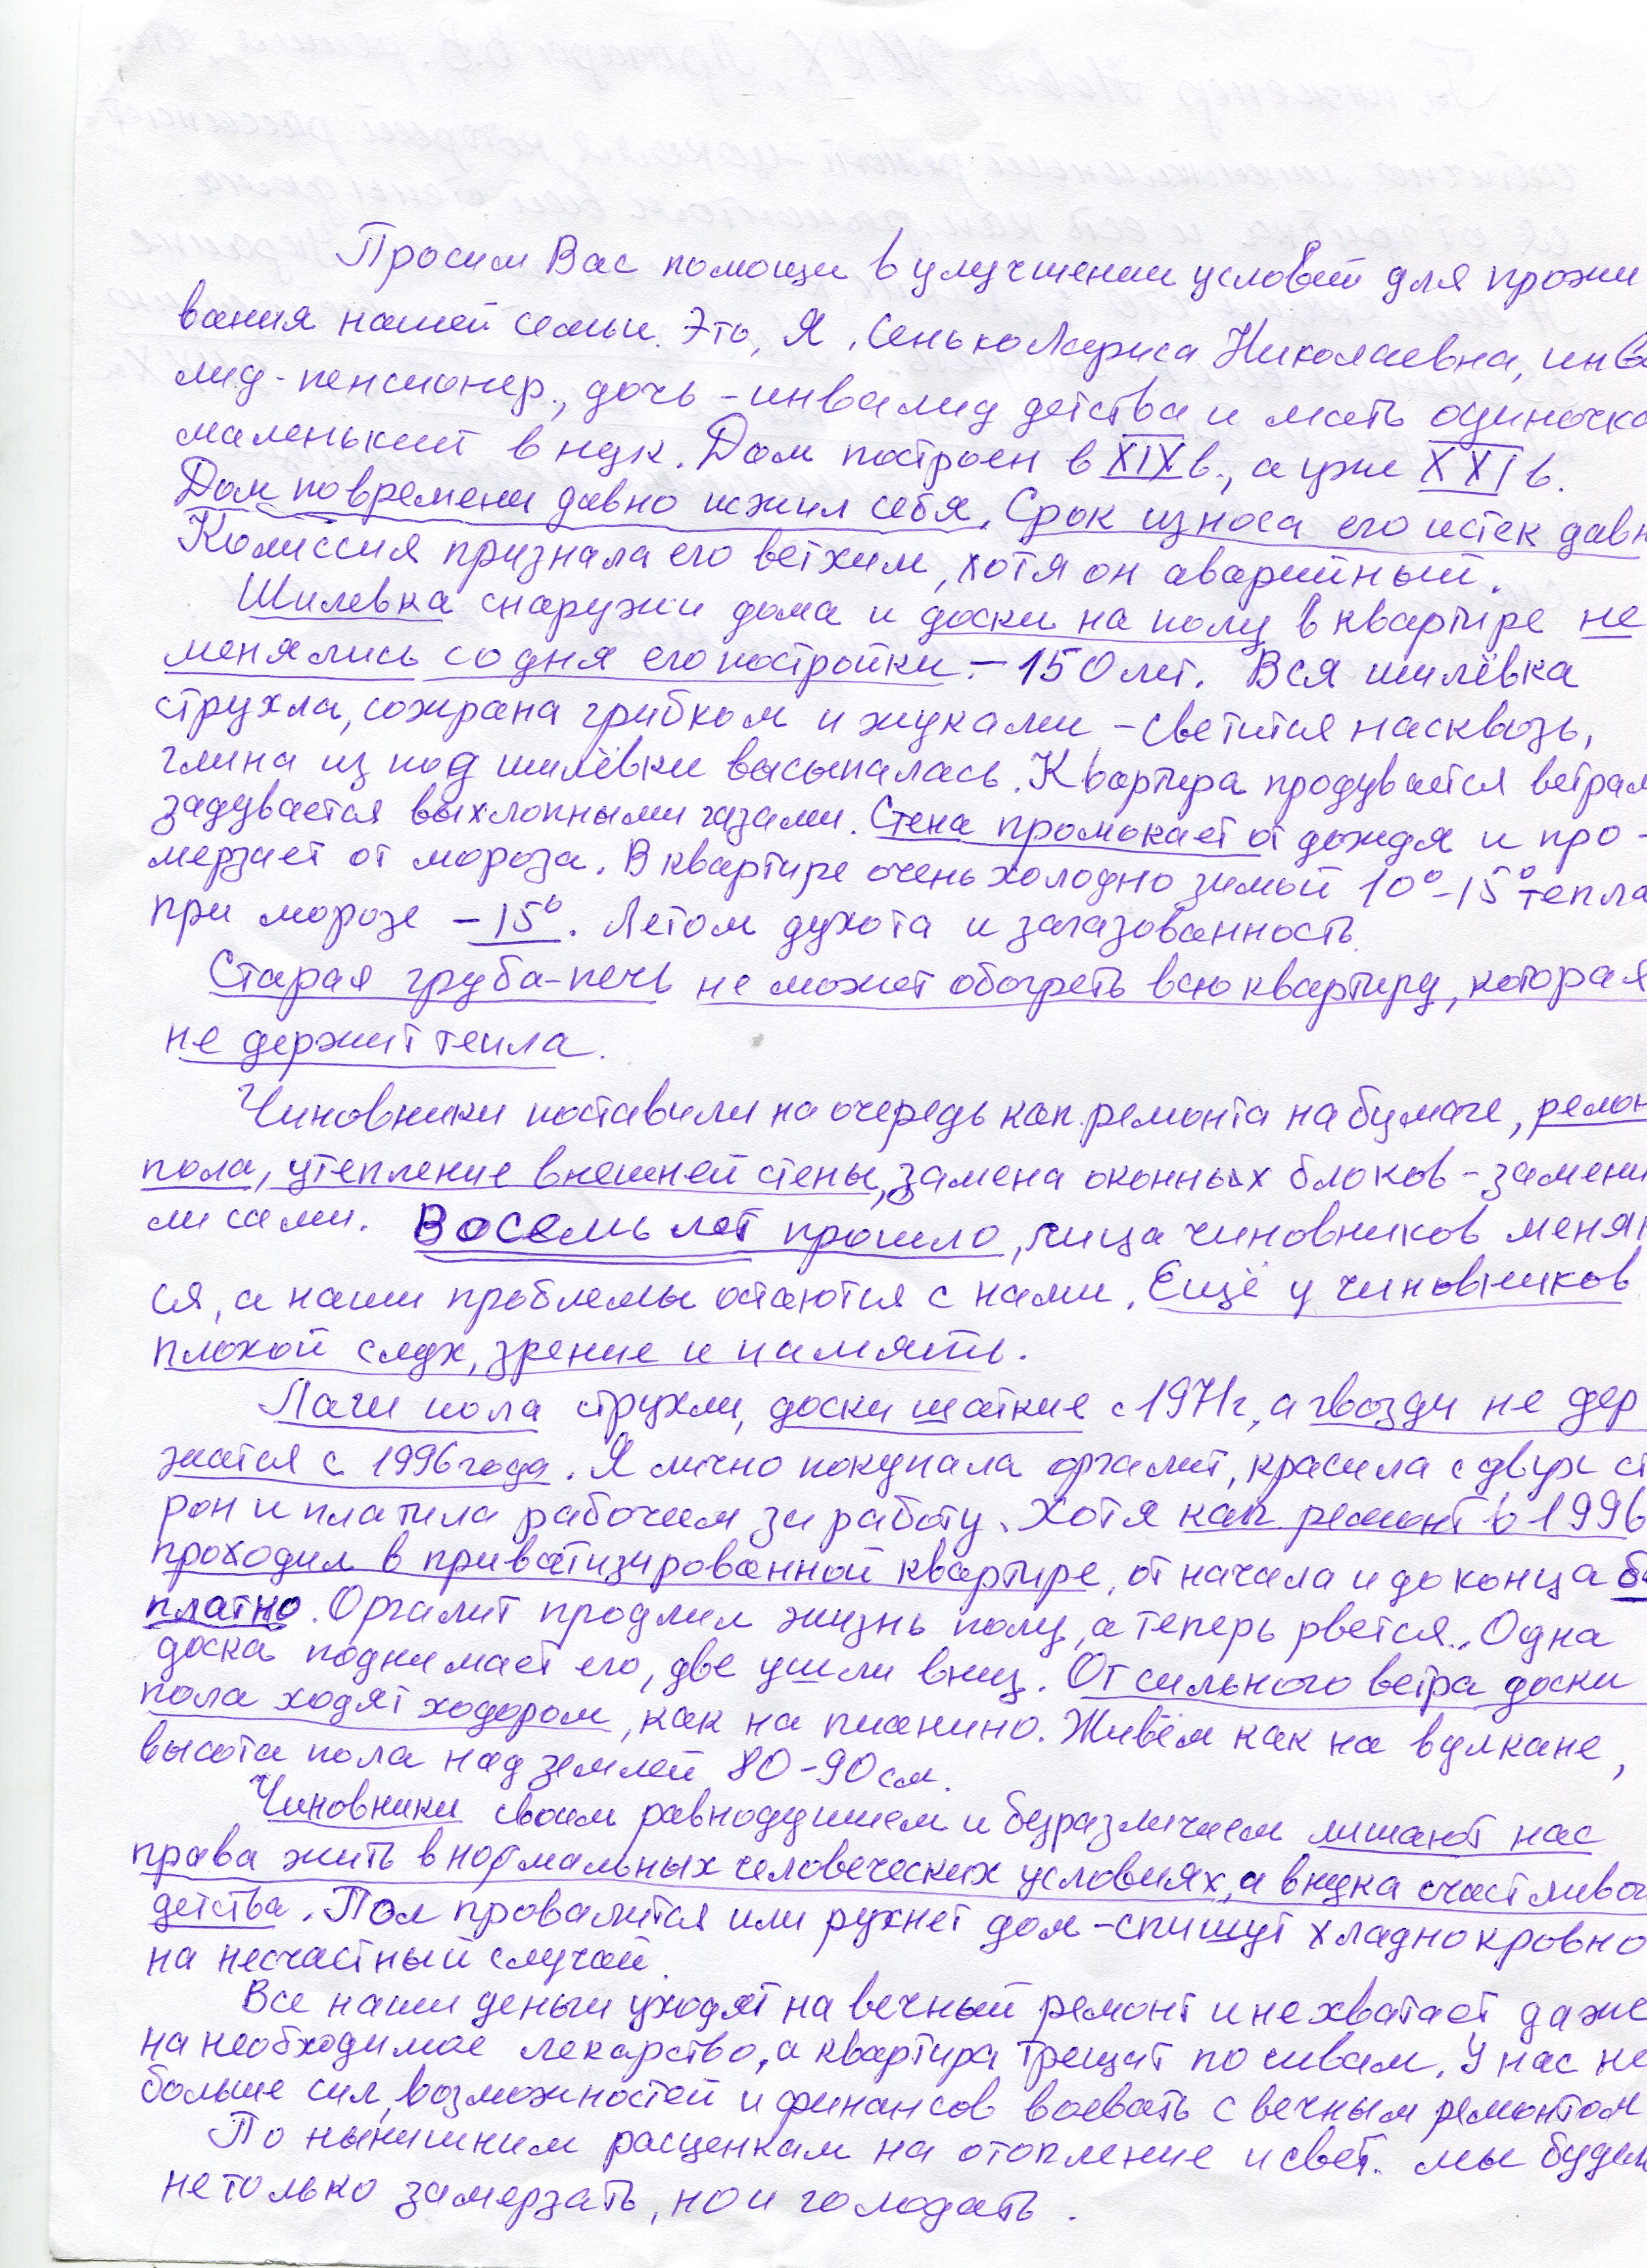 Просим Вас помощи в улучшении условий для прожи
вания нашей семьи. Это, Я, Сенько Лариса Николаевна, инва
лид-пенсионер, дочь - инвалид детства и мать одиночка
маленький внук. Дом построен в XIX в., а уже XXI в.
Дом по времени давно изжил себя. Срок износа его истек давн
Комиссия признала его ветхим, хотя он аварийный.
Шилевка снаружи дома и доски на полу в квартире не
менялись со дня его постройки - 150 лет. Вся шилёвка
струхла, сожрана грибком и жуками - светится насквозь,
глина из под шилёвки высыпалась. Квартира продувается ветрам
задувается выхлопными газами. Стена промокает от дождя и про-
мерзает от мороза. В квартире очень холодно зимой 10°-15° тепла
при морозе -15°. Летом духота и загазованность.
Старая груба-печь не может обогреть всю квартиру, которая
не держит тепла.
Чиновники поставили на очередь кап. ремонта на бумаге, ремон
пола, утепление внешней стены, замена оконных блоков - замени
ли сами. Восемь лет прошло, лица чиновников меняю
ся, а наши проблемы остаются с нами. Ещё у чиновников
плохой слух, зрение и память.
Лаги пола струхли, доски шаткие с 1971г, а гвозди не дер
жатся с 1996 года. Я лично покупала оргалит, красила с двух ст
рон и платила рабочим за работу. Хотя кап ремонт в 1996
проходил в приватизированной квартире, от начала и до конца бе
платно. Оргалит продлил жизнь полу, а теперь рвется. Одна
доска поднимает его, две ушли вниз. От сильного ветра доски
пола ходят ходором, как на пианино. Живём как на вулкане,
высота пола над землей 80-90см.
Чиновники своим равнодушием и безразличием лишают нас
права жить в нормальных человеческих условиях, а внука счастливо
детства. Пол провалится или рухнет дом - спишут хладнокровно
на несчастный случай.
Все наши деньги уходят на вечный ремонт и не хватает даже
на необходимое лекарство, а квартира трещит по швам. У нас не
больше сил, возможностей и финансов воевать с вечным ремонтом
По нынишним расценкам на отопление и свет. мы будем
не только замерзать, но и голодать.